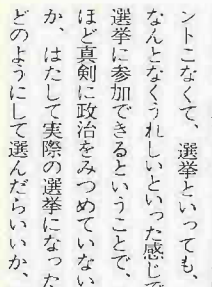 ントこなくて、選挙といっても、
なんとなくうれしいといった感じで
選挙に参加できるということで、
ほど真剣に政治をみつめていない
か、はたして実際の選挙になった
どのようにして選んだらいいか、